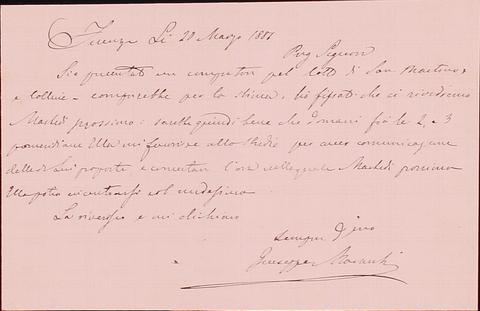 Firenze Li 20 Marzo 1881
Preg Signore
Si è presentato un compratore pel lotto di San Martino
e Colline - comprerebbe per la stima. Ho fissato che ci rivediamo
Martedì prossimo: sarebbe quindi bene che domani fra le 2 e 3
pomeridiane Ella mi favorisse allo studio per avere comunicazione
delle di Lui proposte, e concertare l'ora nella quale Martedì prossimo
Ella potrà incontrarsi col medesimo
La riverisco e mi dichiaro
Giuseppe